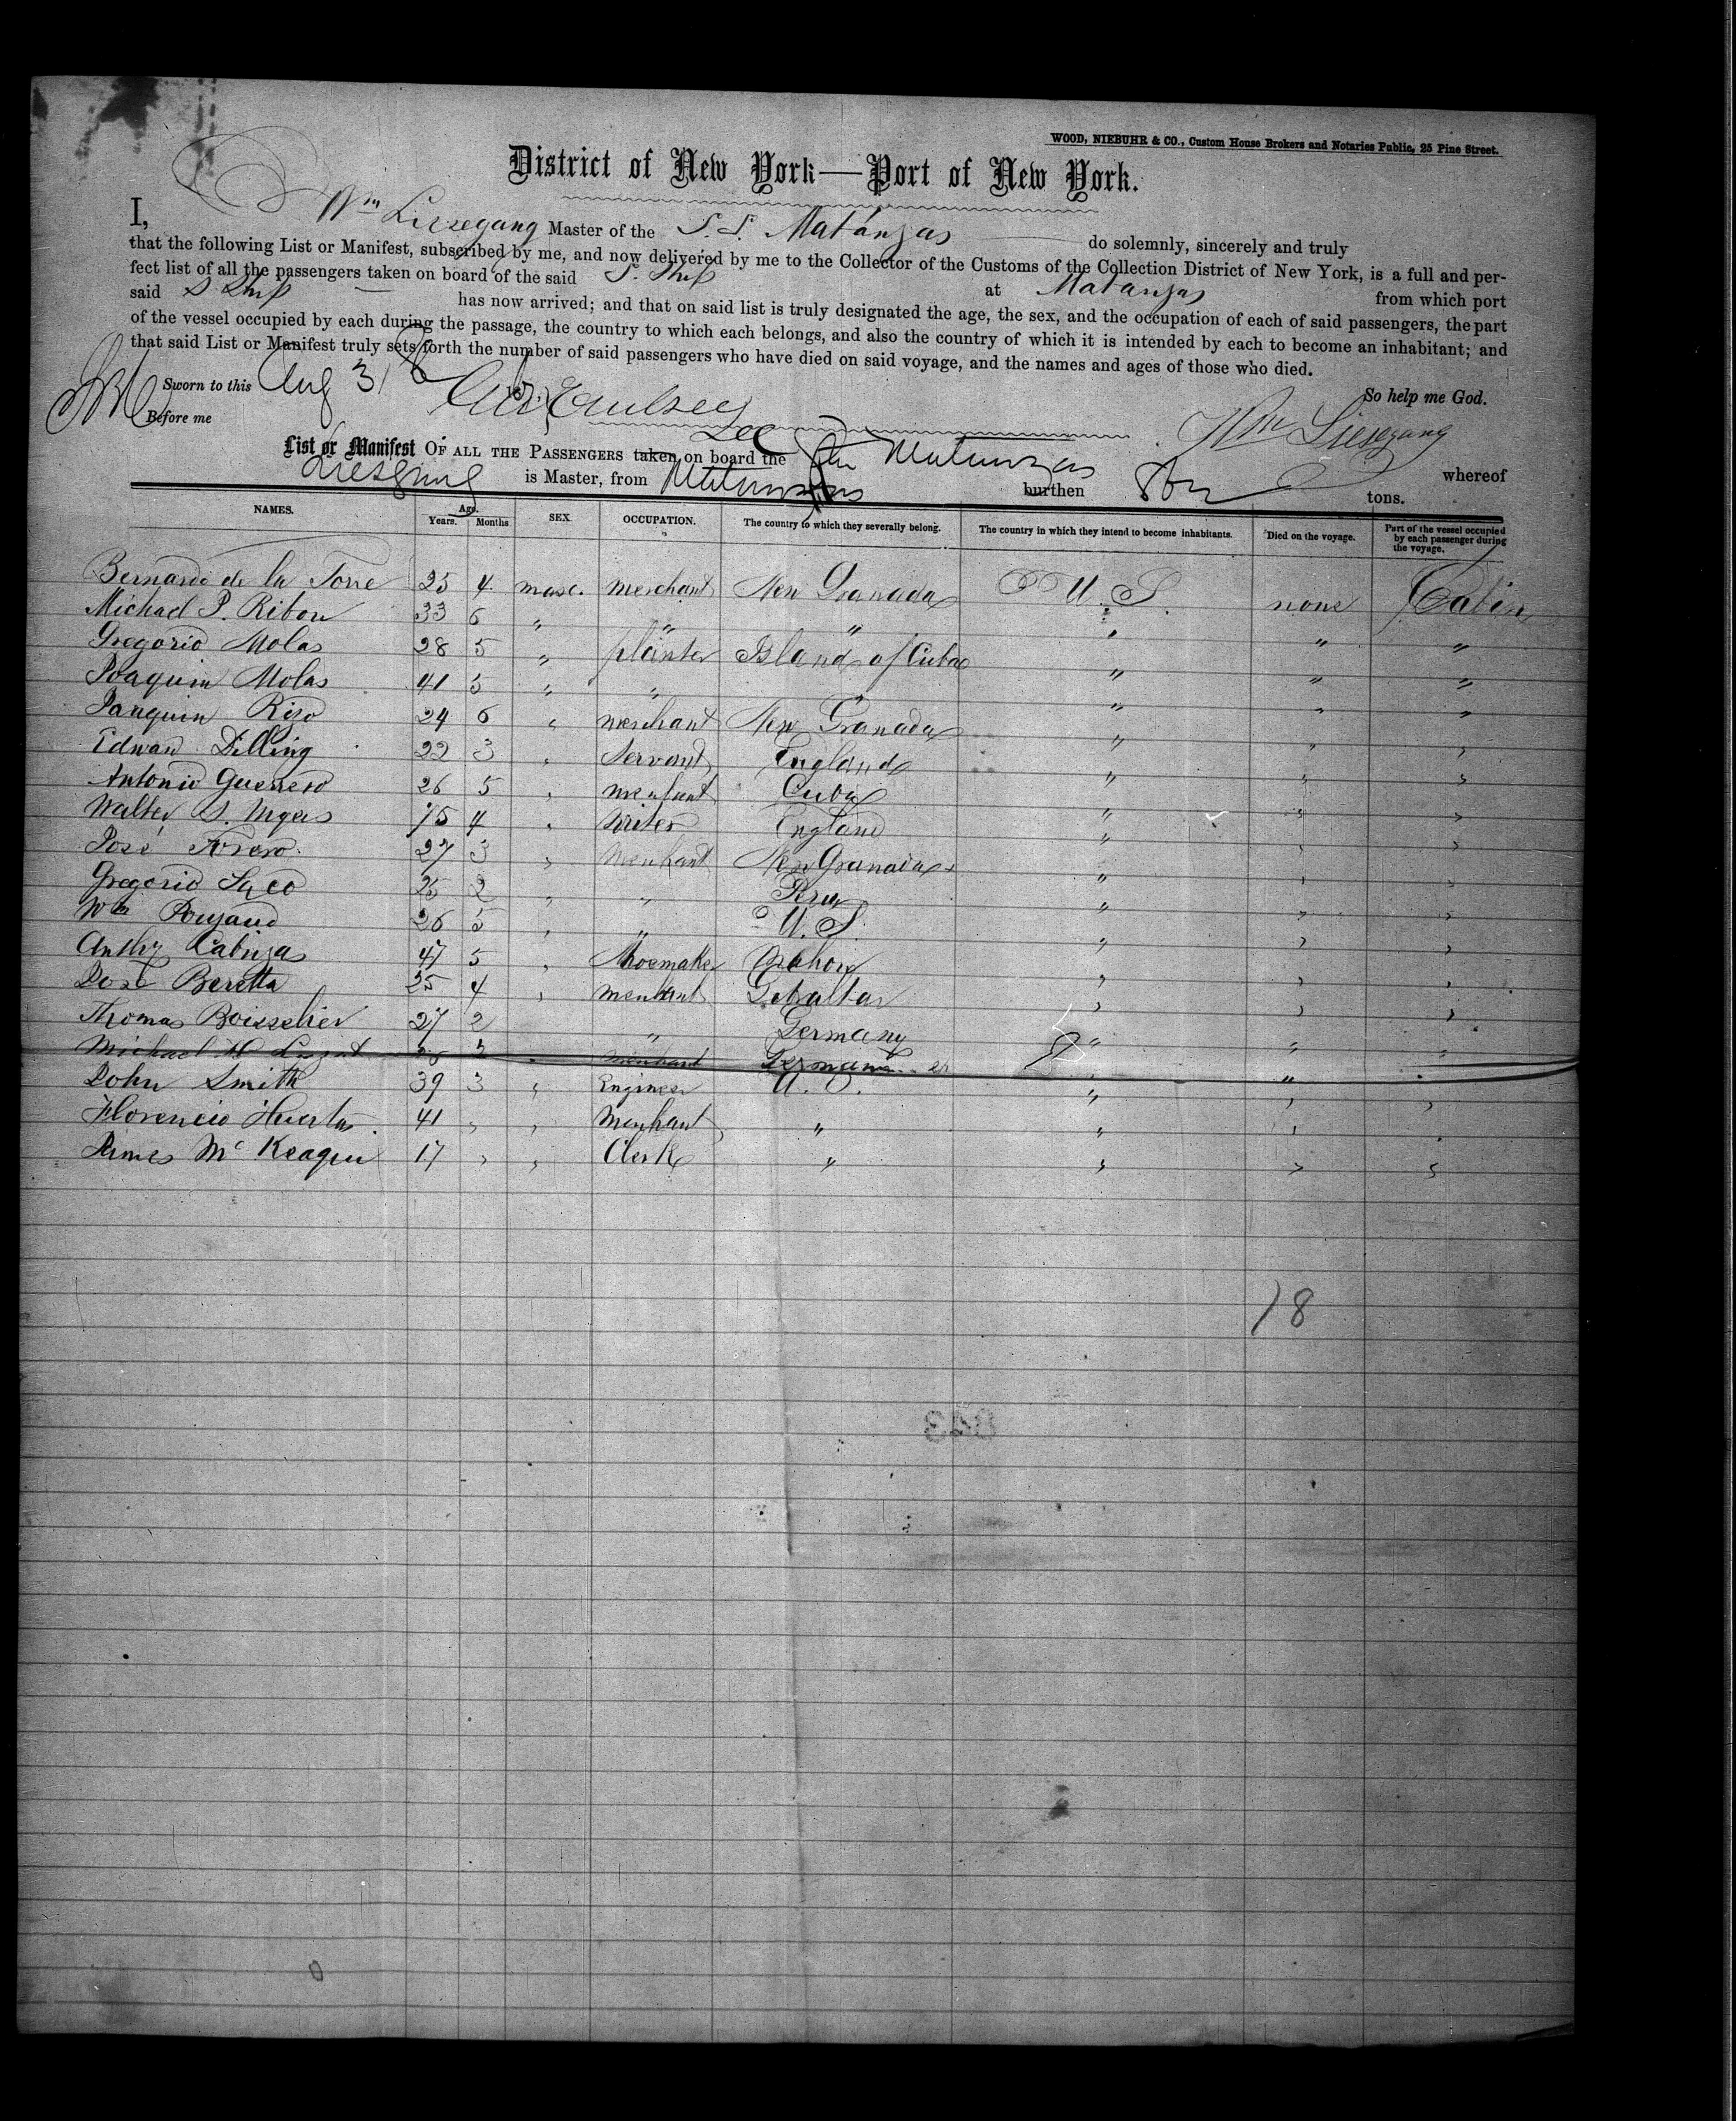 WOOD, NIEBUHR & CO., Custom House Brokers and Notaries Public, 25 Pine Street.
District of New York—Port of New York.
I, Wm Liesegang Master of the S.S. Matanzas do solemnly, sincerely and truly
that the following List or Manifest, subscribed by me, and now delivered by me to the Collector of the Customs of the Collection District of New York, is a full and per-
fect list of all the passengers taken on board of the said S. Ship at Matanzas from which port
said S Ship has now arrived; and that on said list is truly designated the age, the sex, and the occupation of each of said passengers, the part
of the vessel occupied by each during the passage, the country to which each belongs, and also the country of which it is intended by each to become an inhabitant; and
that said List or Manifest truly sets forth the number of said passengers who have died on said voyage, and the names and ages of those who died.
Sworn to this Aug 31 So help me God.
Before me Wm Liesegang
List or Manifest OF ALL THE PASSENGERS taken on board the Matanzas whereof
Liesgang is Master, from Matanzas burthen tons.
NAMES. Age. Years. Months. SEX. OCCUPATION. The country to which they severally belong. The country in which they intend to become inhabitants. Died on the voyage. Part of the vessel occupied by each passenger during the voyage.
Bernardo de la Torre 25 4 masc. merchant New Granada U.S. none Cabin
Michael P. Ribon 33 6 " " " " " "
Gregorio Molas 28 5 " planter Island of Cuba " " "
Joaquin Molas 41 5 " " " " " "
Janquin Rizo 24 6 " merchant New Granada " " "
Edwan Dilling 22 3 " Servant England " " "
Antonio Guerrero 26 5 " merchant Cuba " " "
Walter S. Myers 4 " Writer England " " "
José Forero 27 3 " Merchant New Granada " " "
Gregorio 25 2 " " Peru " " "
Wm 26 5 " " U.S. " " "
Anthy 47 5 " Shoemaker " " "
José Beretta 35 4 " merchant Gibraltar " " "
Thomas Boisselier 27 2 " Germany " " "
Michael H 3 " merchant German " " "
John Smith 39 3 " Engineer U.S. " " "
Florencio Huertas 41 " " Merchant " " " "
James McKeague 17 " " Clerk " " " "
18
843